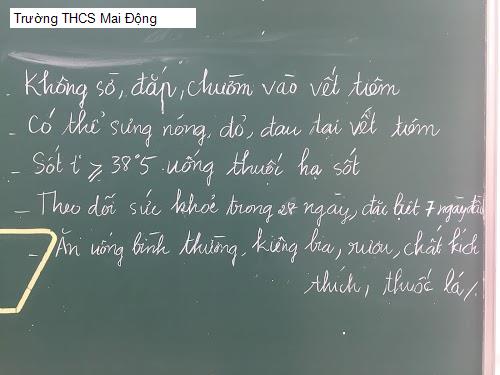 Trường THCS Mai Động
- Không sờ, đắp, chườm vào vết tiêm
- Có thể sưng nóng, đỏ, đau tại vết tiêm
- Sốt t° ≥ 38°5 uống thuốc hạ sốt
- Theo dõi sức khoẻ trong 28 ngày, đặc biệt 7 ngày đầu
- Ăn uống bình thường, kiêng bia, rượu, chất kích
thích, thuốc lá /.